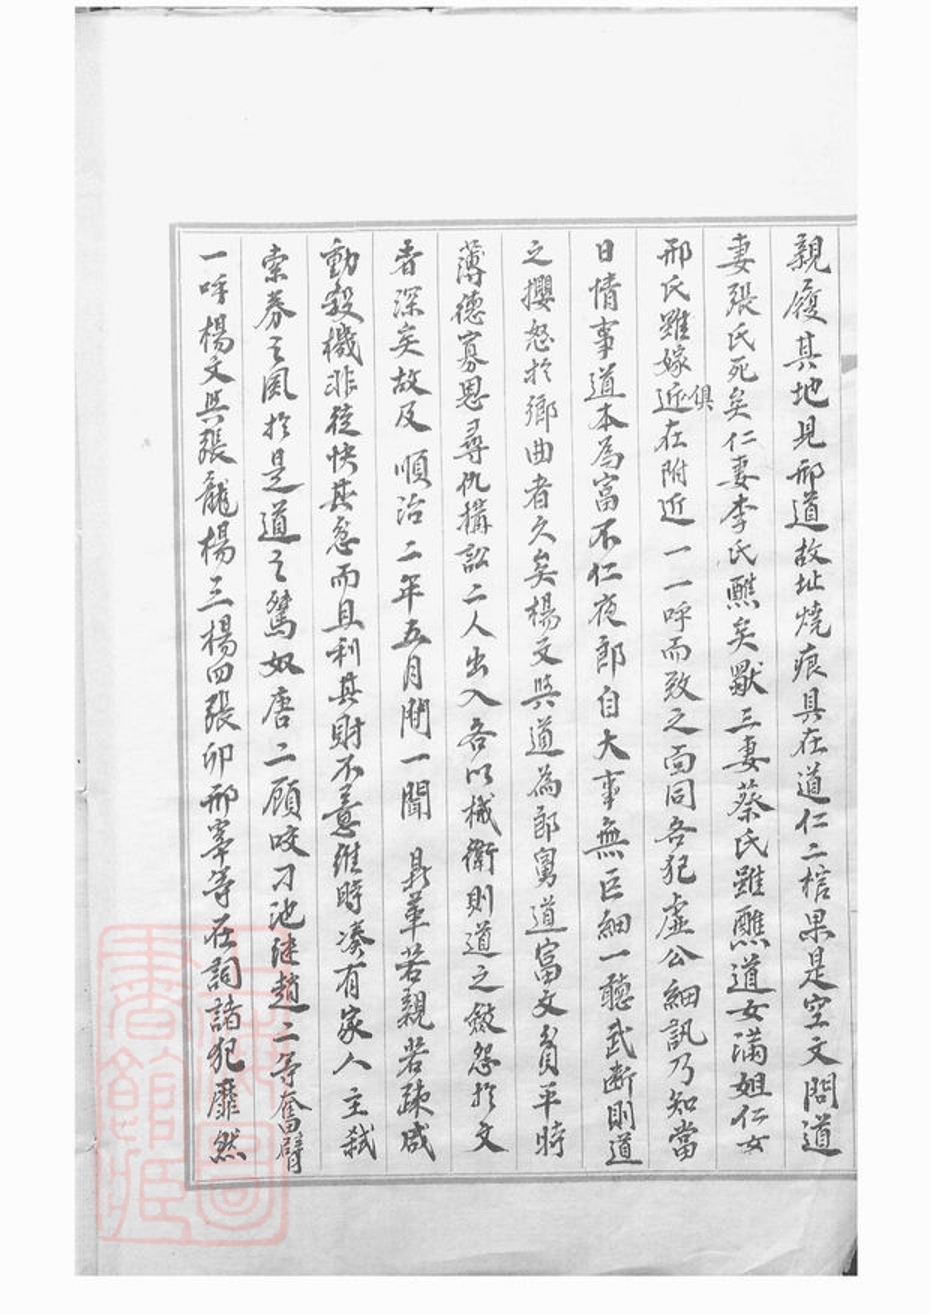 親履其地見邢道故址燒痕具在道仁二棺果是空文問道
妻張氏死矣仁妻李氏醮矣獸三妻蔡氏雖醮道女滿姐仁女
邢氏雖嫁俱近在附近一一呼而致之面同各犯虛公細訊乃知當
日情事道本為富不仁夜郎自大事無巨細一聽武斷則道
之攖怒於鄉曲者久矣楊文與道為郎舅道富文貧平時
薄德寡恩尋仇搆訟二人出入各以械衛則道之斂怨於文
者深矣故及順治二年五月閧一聞鼎革若親若疎咸
動殺機非徒快其忿而且利其財不意維時湊有家人主弒
索券之風於是道之鴛奴唐二顧咬刀池继趙二等奮臂
一呼楊文與張龍楊三楊四張卯邢寧等在詞諸犯靡然
上海圖書館